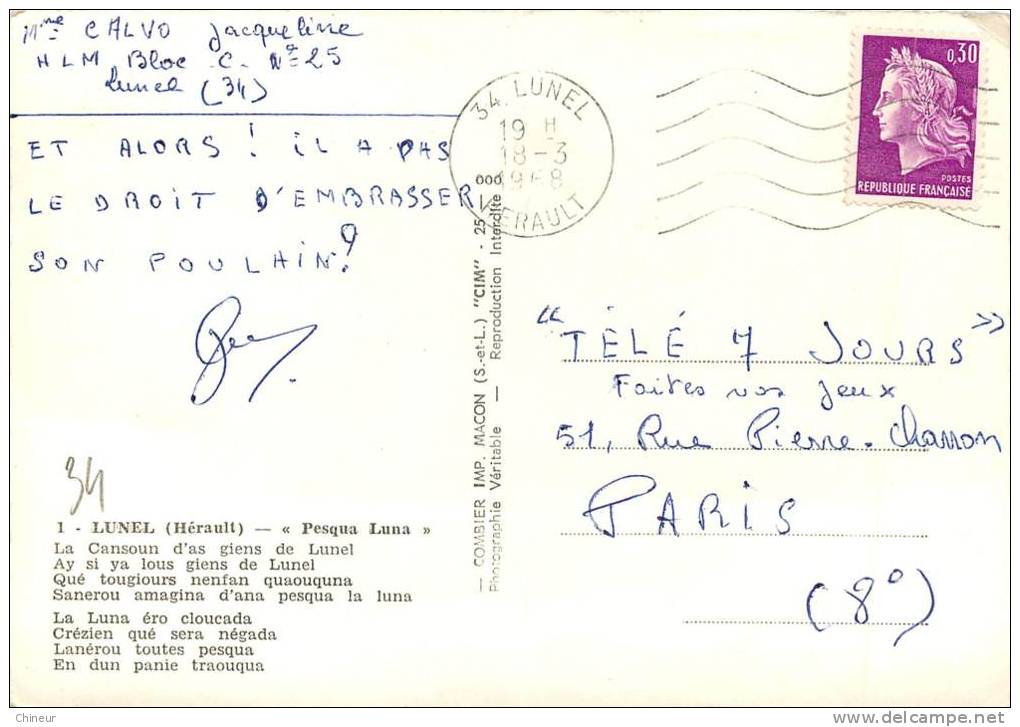 Mme CALVO Jacqueline
HLM Bloc C. No 25
Lunel (34)
ET ALORS! iL A PAS
LE DROIT D'EMBRASSER
SON POULAIN?
34
1 - LUNEL (Hérault) — « Pesqua Luna »
La Cansoun d'as giens de Lunel
Ay si ya lous giens de Lunel
Qué tougiours nenfan quaouquna
Sanerou amagina d'ana pesqua la luna
La Luna éro cloucada
Crézien qué sera négada
Lanérou toutes pesqua
En dun panie traouqua
— COMBIER IMP. MACON (S.-et-L.) "CIM" - 25
Photographie Véritable — Reproduction Interdite
34. LUNEL
19 H
18-3
1968
HERAULT
0,30
POSTES
REPUBLIQUE FRANÇAISE
"TÉLÉ 7 JOURS"
Faites vos jeux
51, Rue Pierre-Charron
PARIS
(8°)
Chineur
delcampe.net